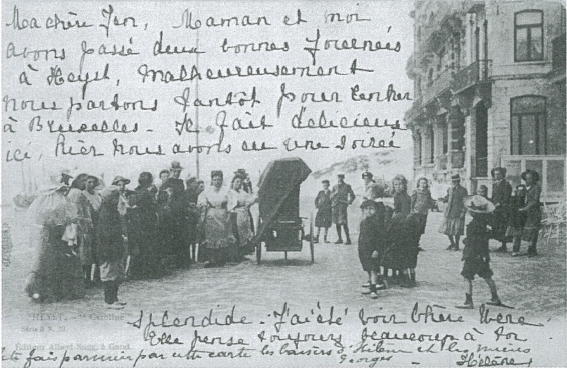 Ma chère Jen, Maman et moi
avons passé deux bonnes journeés
à Heyst, malheureusement
nous partons tantôt pour
à Bruxelles - Il fait délicieux
ici, hier nous avons eu une soirée
HEYST. - Caroline
Série 8 N. 
Splendide. J'ai été voir chère
Elle pense toujours beaucoup à toi
Editeurs Albert Sugg, à Gand.
te fais parvenir par cette carte les baisers d' et les miens
Georges - Hélène